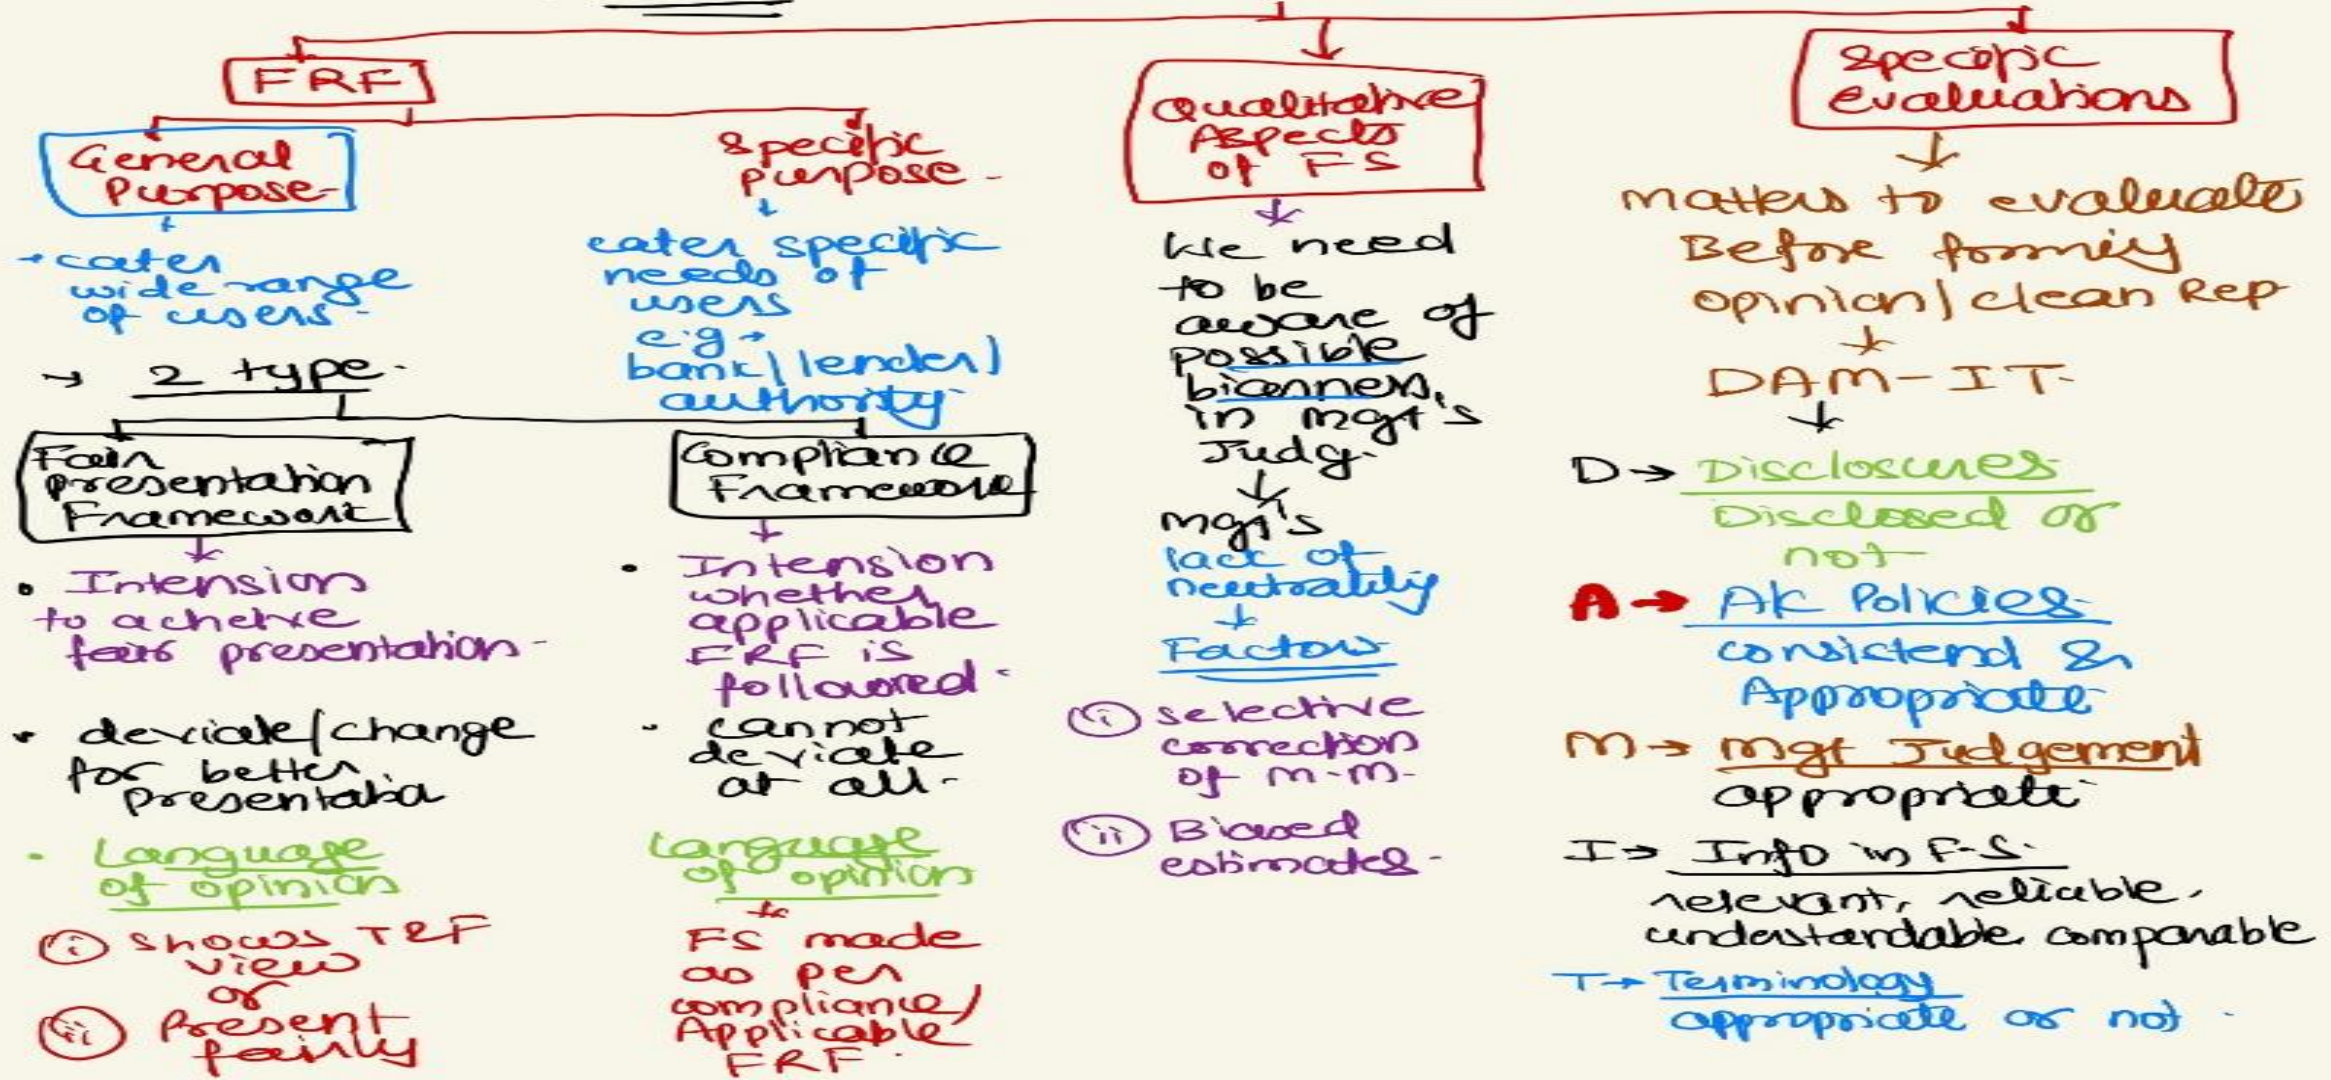 FRF
General
Purpose-
→ cater
wide range
of users-
→ 2 type.
Specific
purpose-
cater specific
needs of
users
e.g→
bank/lender/
authority
Fair
presentation
Framework
• Intension
to acheive
fair presentation-
• deviate/change
for better
presentatio
• Language
of opinion
(i) shows T&F
view
or
(ii) Present
fairly
Compliance
Framework
• Intension
whether
applicable
FRF is
followed.
- cannot
deviate
at all-
Language
of opinion
FS made
as per
compliance/
Applicable
FRF.
Qualitative
Aspects
of FS
We need
to be
aware of
possible
biasness,
in mgt's
Judg.
mgt's
lack of
neutrality
Factors
(i) selective
correction
of m.m.
(ii) Biased
estimates-
Specific
evaluations
matters to evaluate
Before forming
opinion/clean Rep
DAM-IT-
D→ Disclosures
Disclosed or
not
A→ A/c Policies
consistend &
Appropriate
M→ mgt Judgement
appropriate
I→ Info in F.S.
relevant, reliable,
understandable comparable
T→ Terminology
appropriate or not.